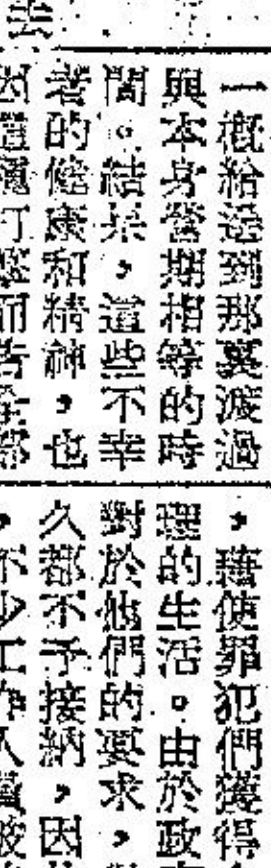 一概給送到那裏渡過
與本身營期相等的時
間。結果，這些不幸
者的健康和精神，也
因這種打擊而告全部
，藉使罪犯們獲得
理的生活。由於政
對於他們的要求，
久都不予接納，因
，不少工作人員被